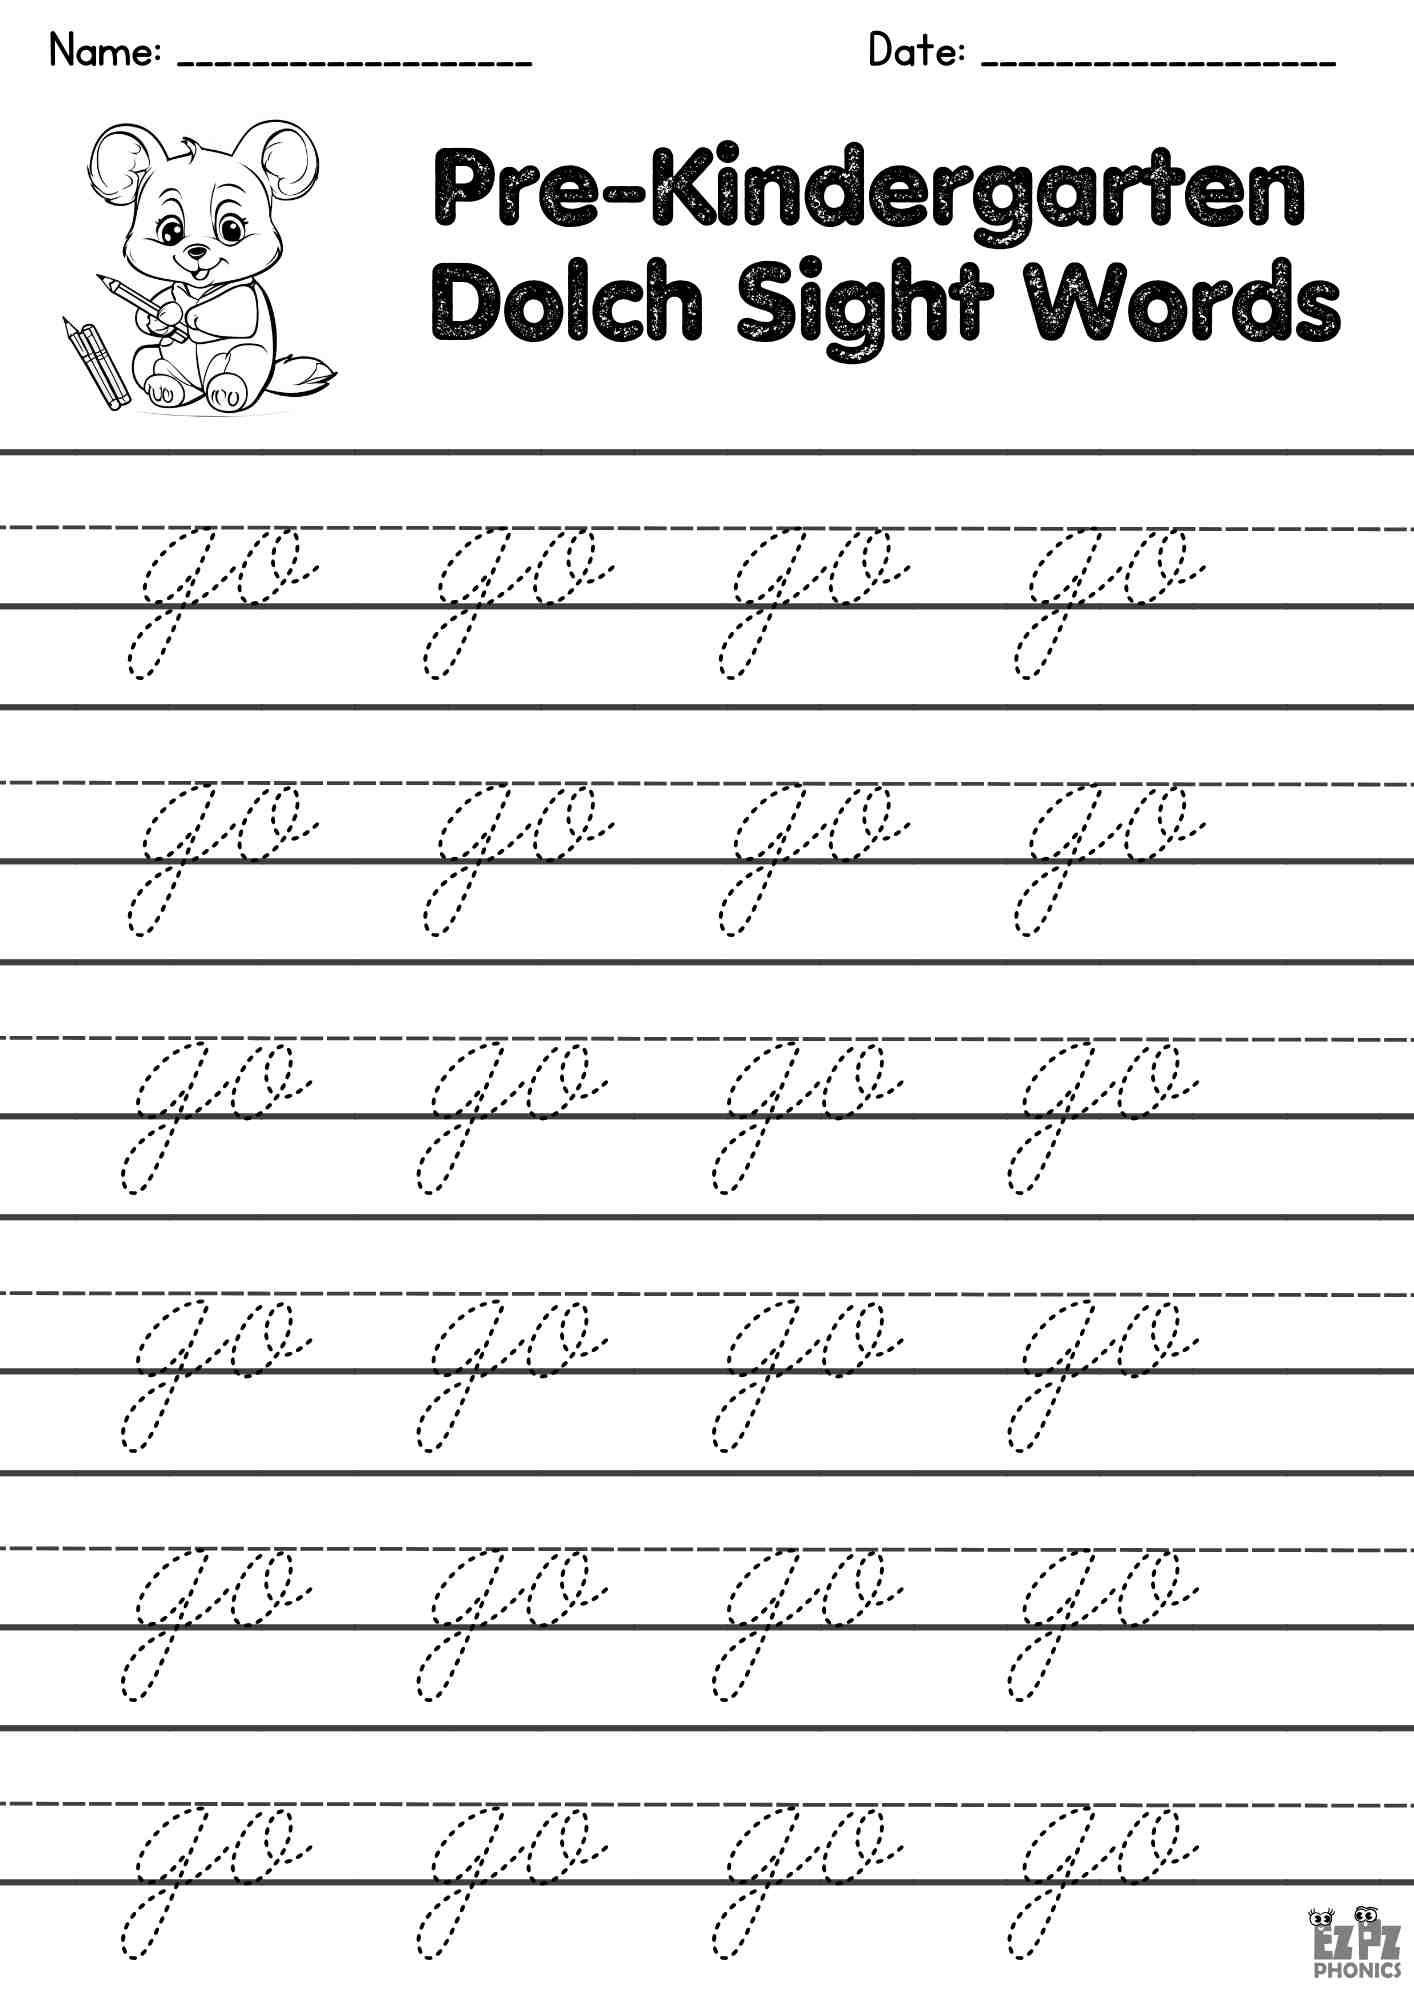 Name: ___________________ Date: ___________________
Pre-Kindergarten
Dolch Sight Words
go go go go
go go go go
go go go go
go go go go
go go go go
go go go go
EZPZ
PHONICS